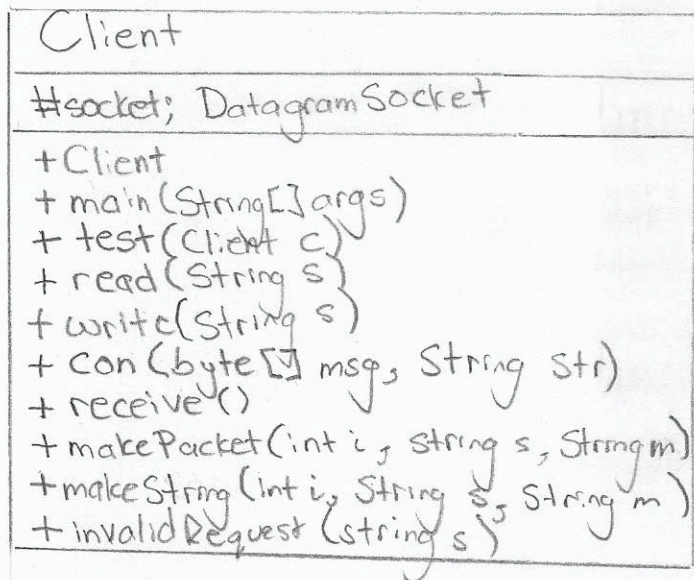 Client
#socket; DatagramSocket
+Client
+ main(String[] args)
+ test(Client c)
+ read(String s)
+ write(String s)
+ con(byte[] msg, String str)
+ receive()
+ makePacket(int i, string s, String m)
+ makeString(int i, String s, String m)
+ invalidRequest(string s)